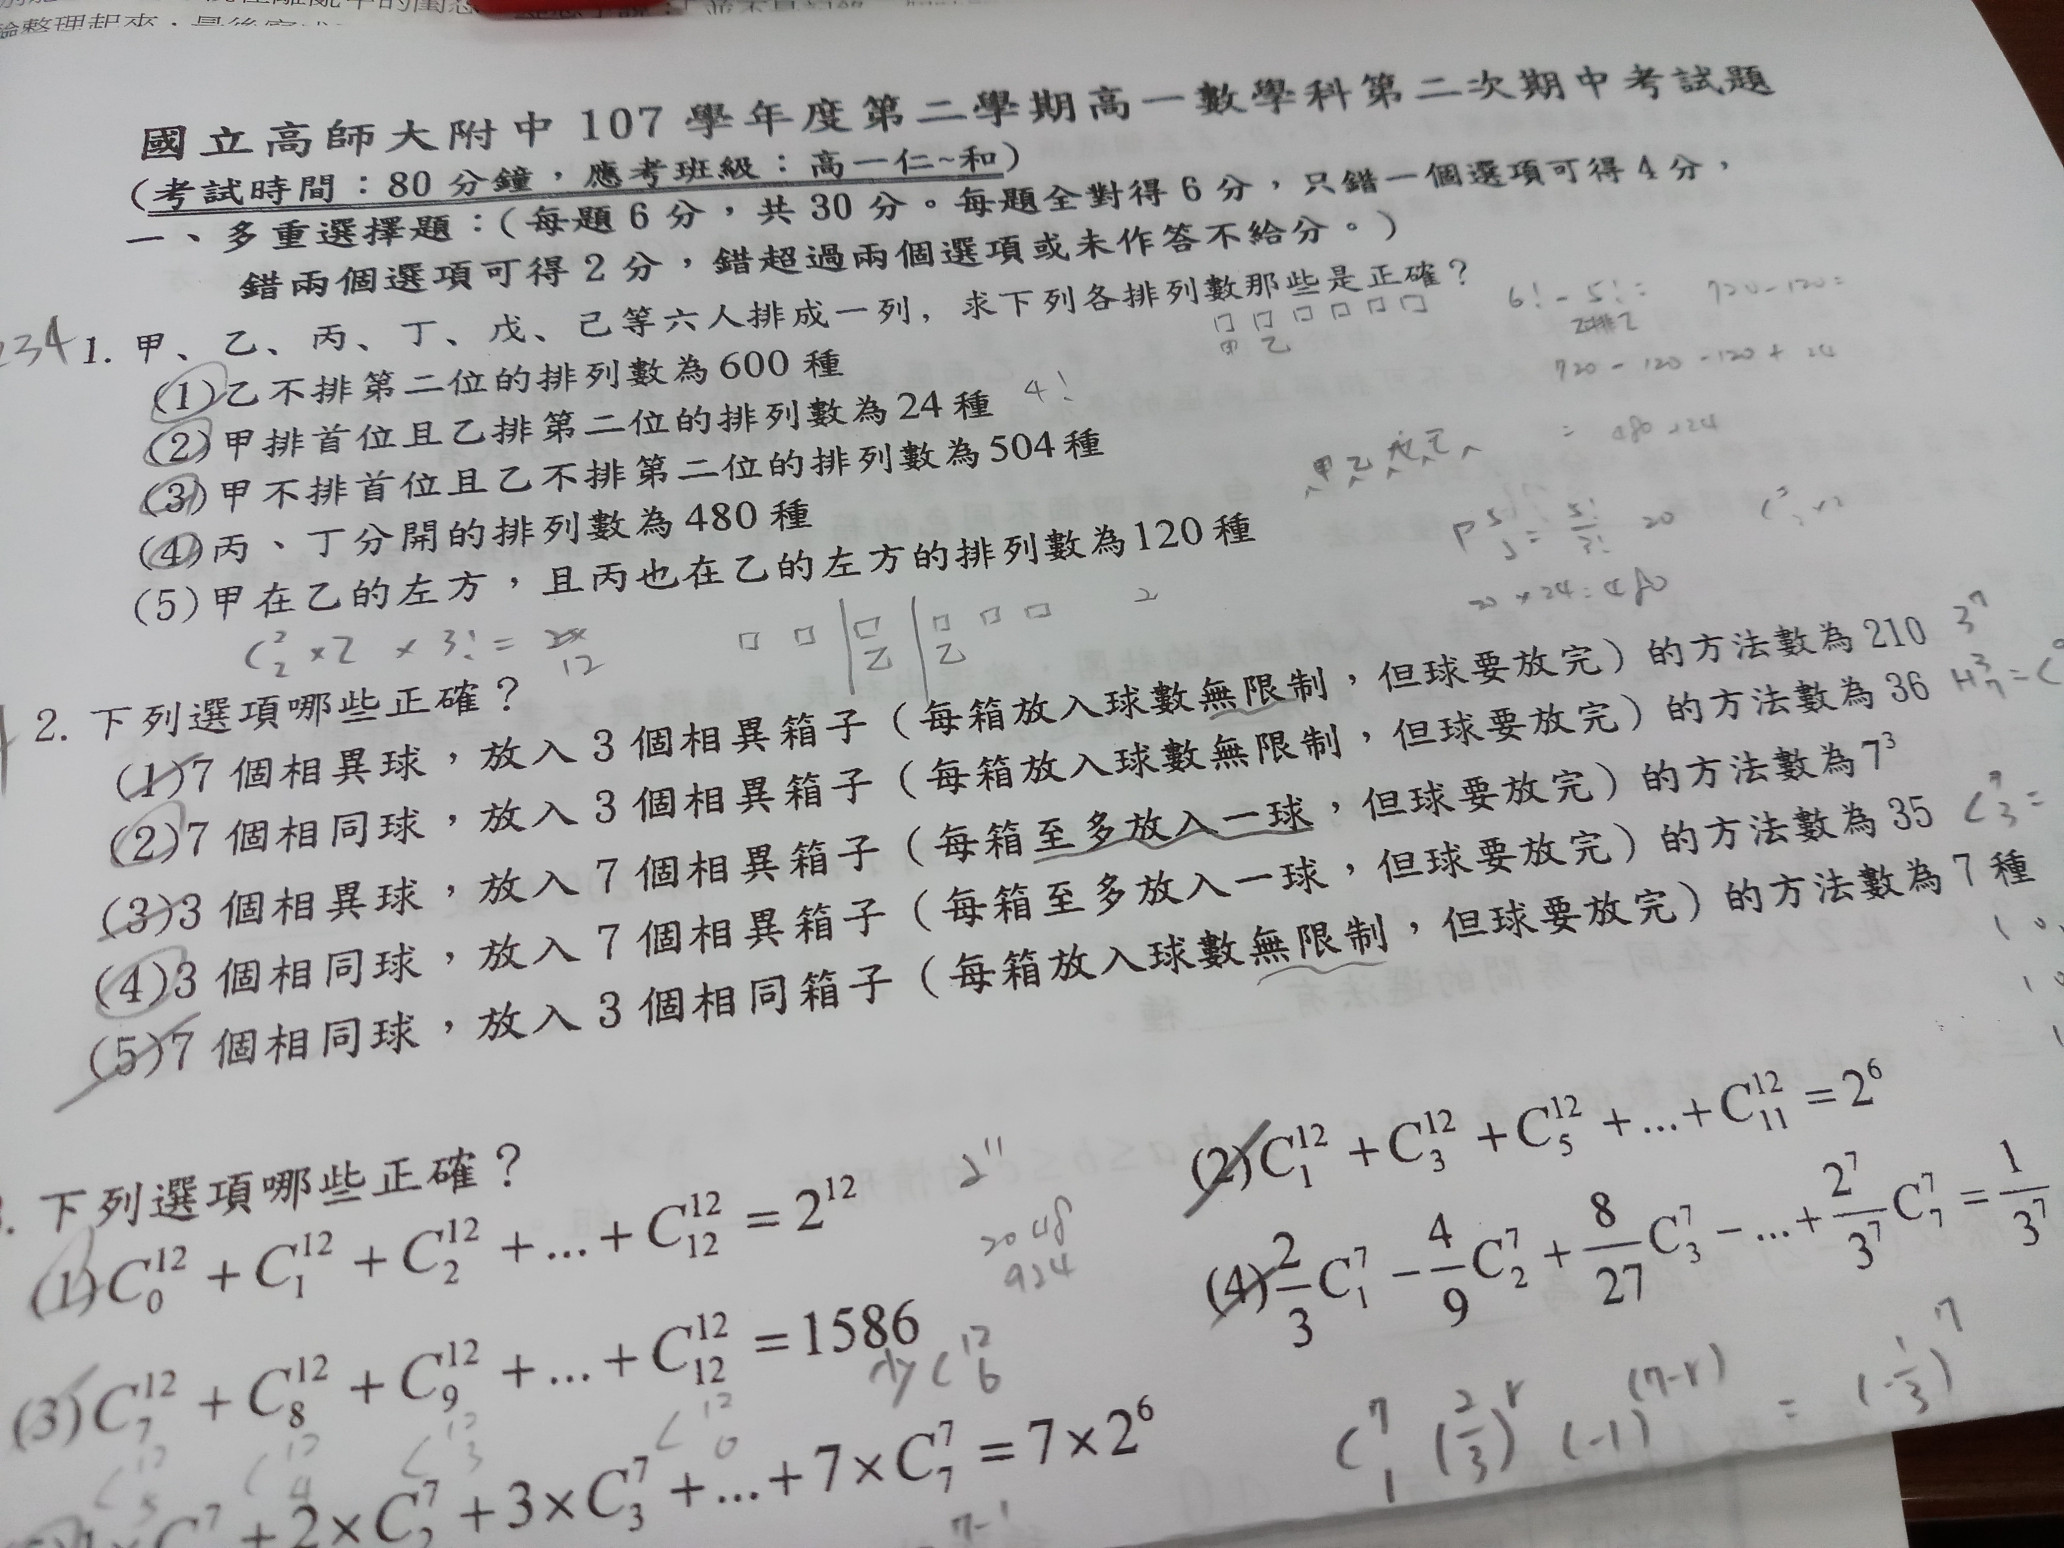 國立高師大附中 107 學年度第二學期高一數學科第二次期中考試題
(考試時間：80 分鐘，應考班級：高一仁~和)
一、多重選擇題：(每題 6 分，共 30 分。每題全對得 6 分，只錯一個選項可得 4 分，
錯兩個選項可得 2 分，錯超過兩個選項或未作答不給分。)
234
1. 甲、乙、丙、丁、戊、己等六人排成一列，求下列各排列數那些是正確？
6! - 5! = 720-120=
甲 乙
720 - 120 - 120 + 24
(1)乙不排第二位的排列數為 600 種
(2)甲排首位且乙排第二位的排列數為 24 種 4!
= 480+24
(3)甲不排首位且乙不排第二位的排列數為 504 種
(4)丙、丁分開的排列數為 480 種
20×24=480
(5)甲在乙的左方，且丙也在乙的左方的排列數為 120 種
C²₂ × 2 × 3! = 12
乙 乙 2
2. 下列選項哪些正確？
(1)7 個相異球，放入 3 個相異箱子（每箱放入球數無限制，但球要放完）的方法數為 210 3⁷
(2)7 個相同球，放入 3 個相異箱子（每箱放入球數無限制，但球要放完）的方法數為 36 H³₇=C
(3)3 個相異球，放入 7 個相異箱子（每箱至多放入一球，但球要放完）的方法數為 7³
(4)3 個相同球，放入 7 個相異箱子（每箱至多放入一球，但球要放完）的方法數為 35 C⁷₃=
(5)7 個相同球，放入 3 個相同箱子（每箱放入球數無限制，但球要放完）的方法數為 7 種
. 下列選項哪些正確？
(1)C₀¹²+C₁¹²+C₂¹²+...+C₁₂¹²=2¹² 2¹¹
(2)C₁¹²+C₃¹²+C₅¹²+...+C₁₁¹²=2⁶
2048
924
(3)C₇¹²+C₈¹²+C₉¹²+...+C₁₂¹²=1586
(4)2/3C₁⁷-4/9C₂⁷+8/27C₃⁷-...+2⁷/3⁷C₇⁷=1/3⁷
少C¹²₆
C¹²₅ C¹²₄ C¹²₃ C¹²₀
C⁷₁ (2/3)ʳ (-1)⁽⁷⁻ʳ⁾ = (-1/3)⁷
C⁷+2×C₂⁷+3×C₃⁷+...+7×C₇⁷=7×2⁶